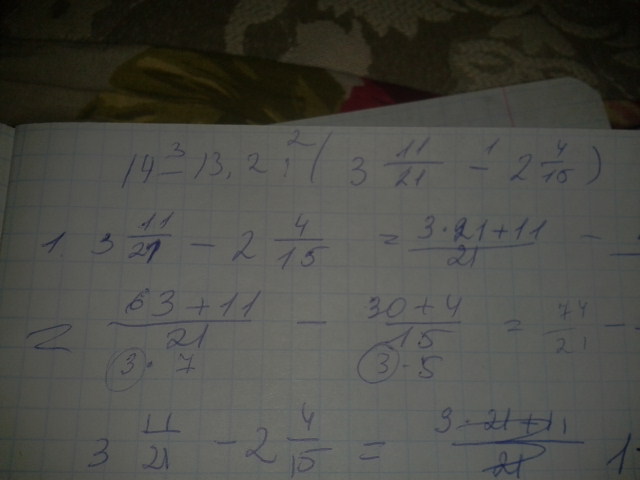 14 - 13,2 : (3 11/21 - 2 4/15)
3 2 1
1. 3 11/21 - 2 4/15 = (3·21+11)/21 -
= (63+11)/21 - (30+4)/15 = 74/21 -
3·7 3·5
3 11/21 - 2 4/15 = (3·21+11)/21